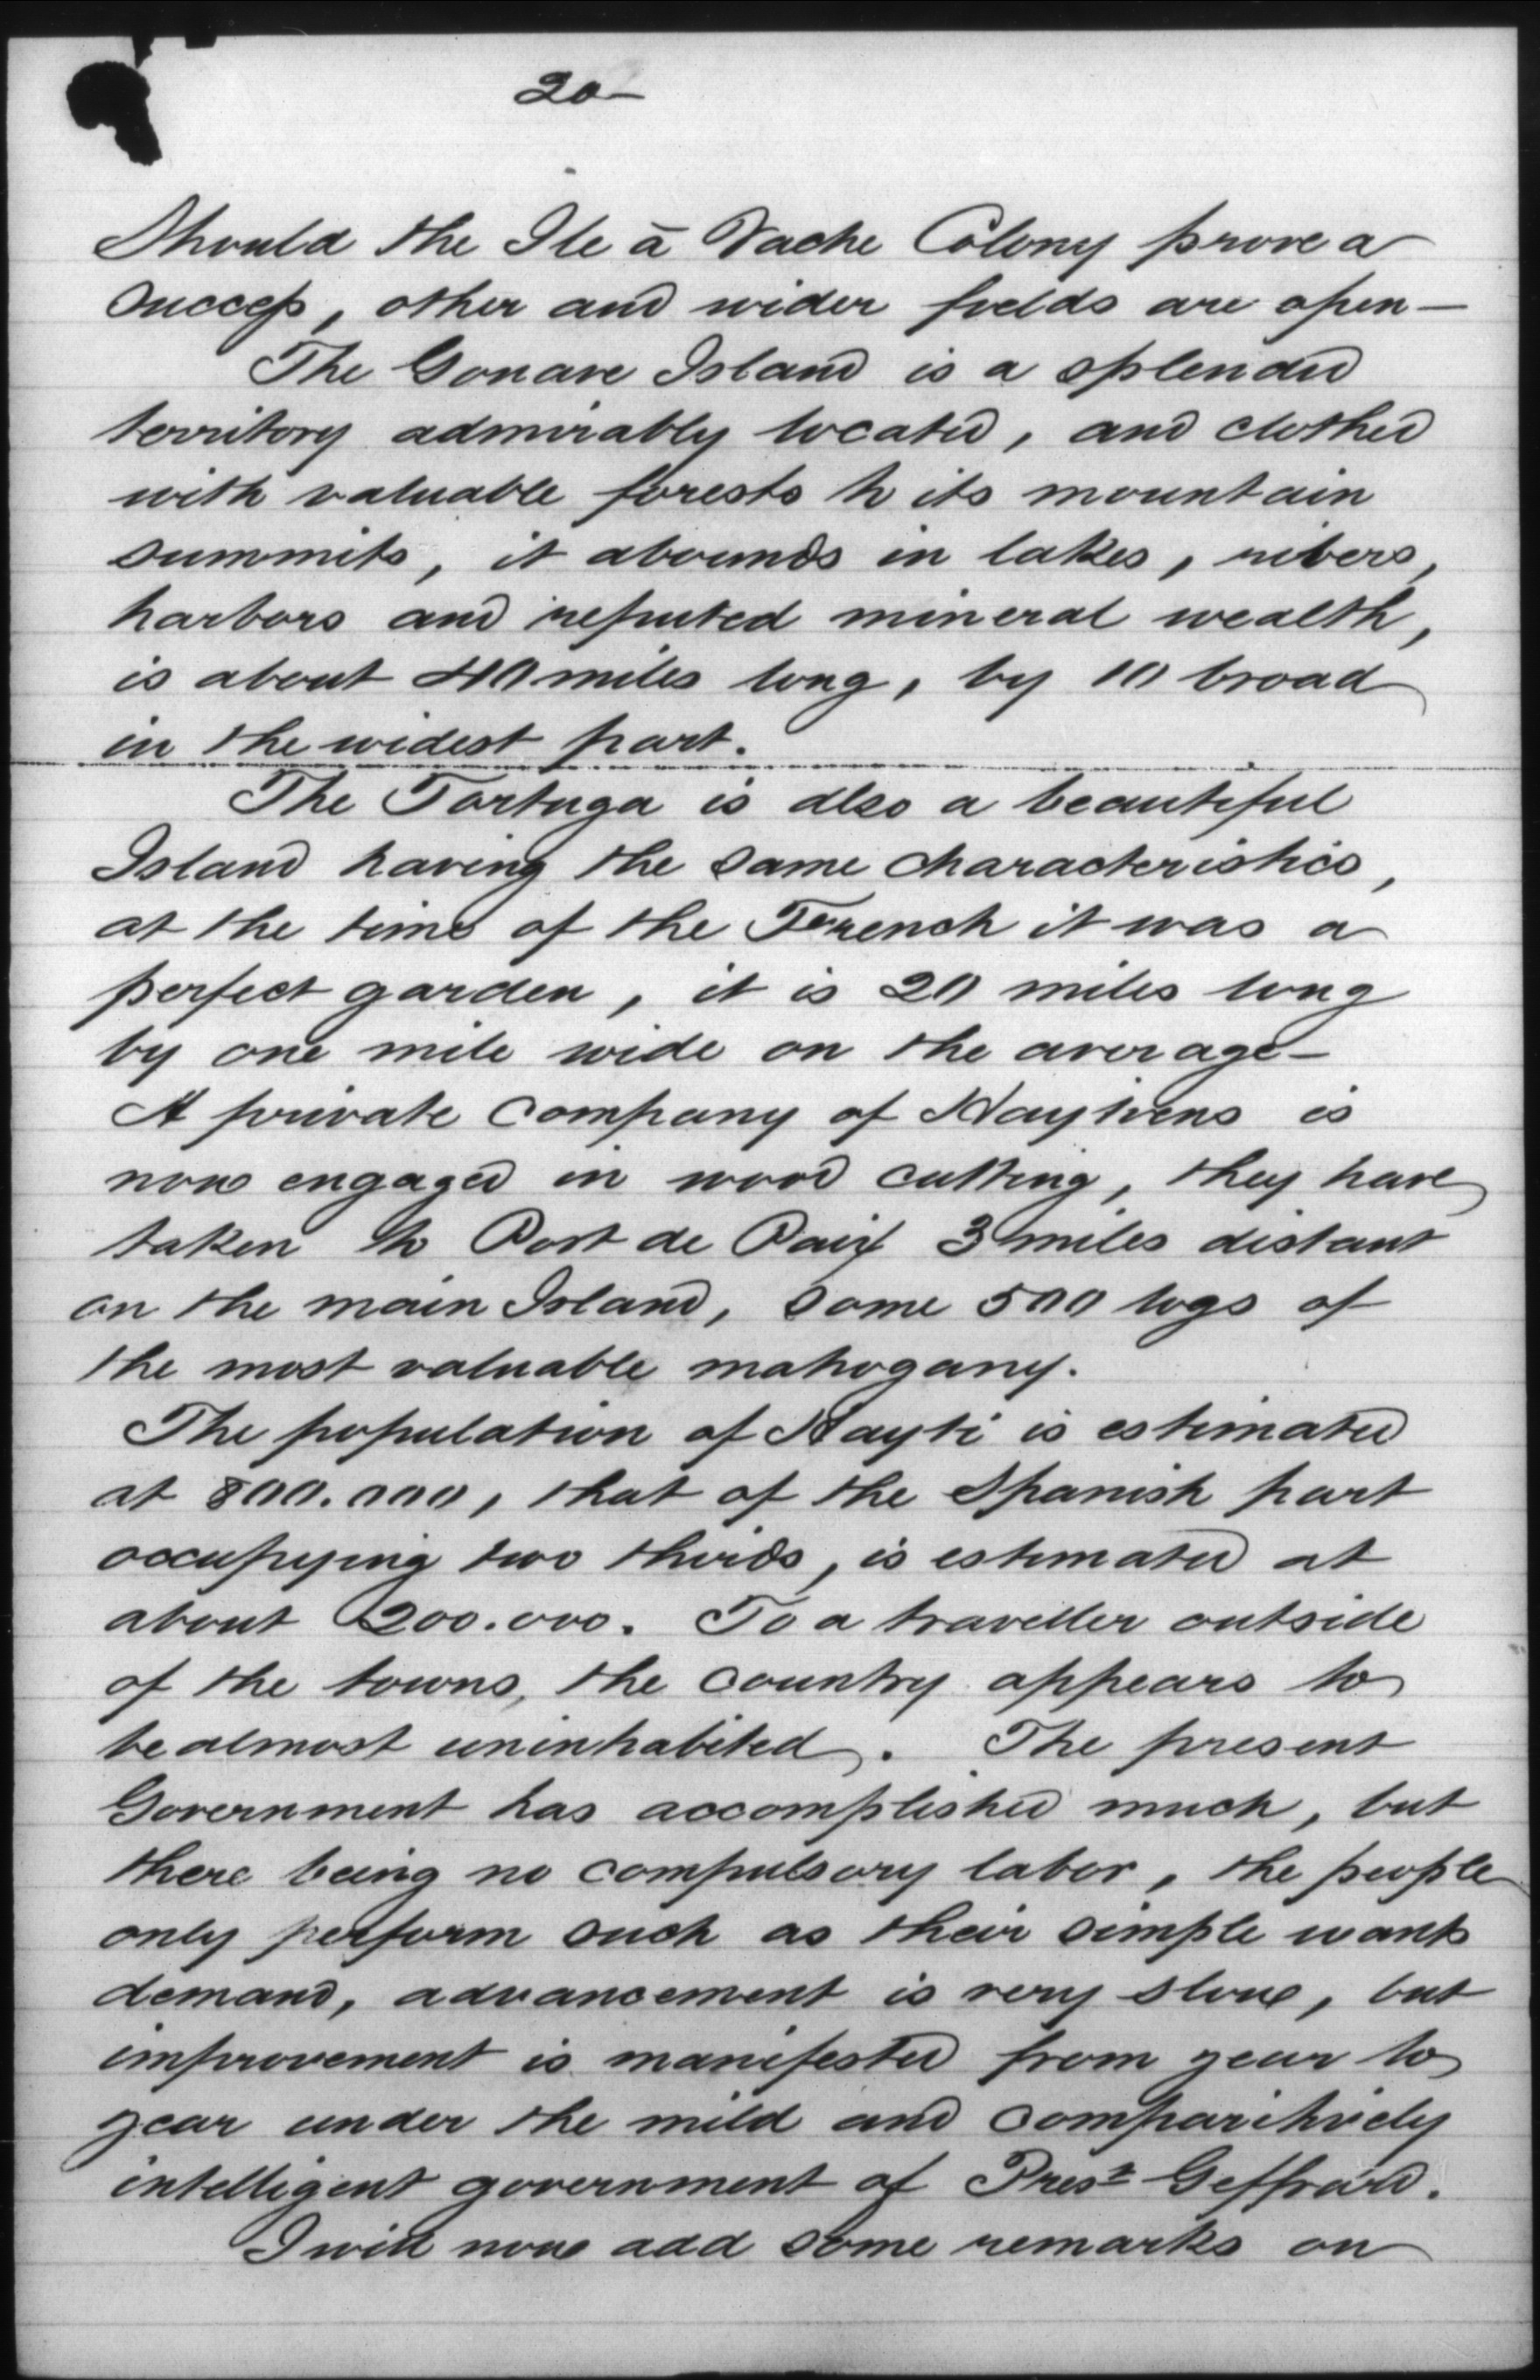 20—
Should the Ile à Vache Colony prove a
success, other and wider fields are open—
The Gonave Island is a splendid
territory admirably located, and clothed
with valuable forests to its mountain
summits, it abounds in lakes, rivers,
harbors and reputed mineral wealth,
is about 40 miles long, by 10 broad
in the widest part.
The Tortuga is also a beautiful
Island having the same characteristics,
at the time of the French it was a
perfect garden, it is 20 miles long
by one mile wide on the average—
A private company of Haytiens is
now engaged in wood cutting, they have
taken to Port de Paix 3 miles distant
on the main Island, some 500 logs of
the most valuable mahogany.
The population of Hayti is estimated
at 800.000, that of the Spanish part
occupying two thirds, is estimated at
about 200.000. To a traveller outside
of the towns, the country appears to
be almost uninhabited. The present
Government has accomplished much, but
there being no compulsory labor, the people
only perform such as their simple wants
demand, advancement is very slow, but
improvement is manifested from year to
year under the mild and comparitively
intelligent government of Prest Geffrard.
I will now add some remarks on